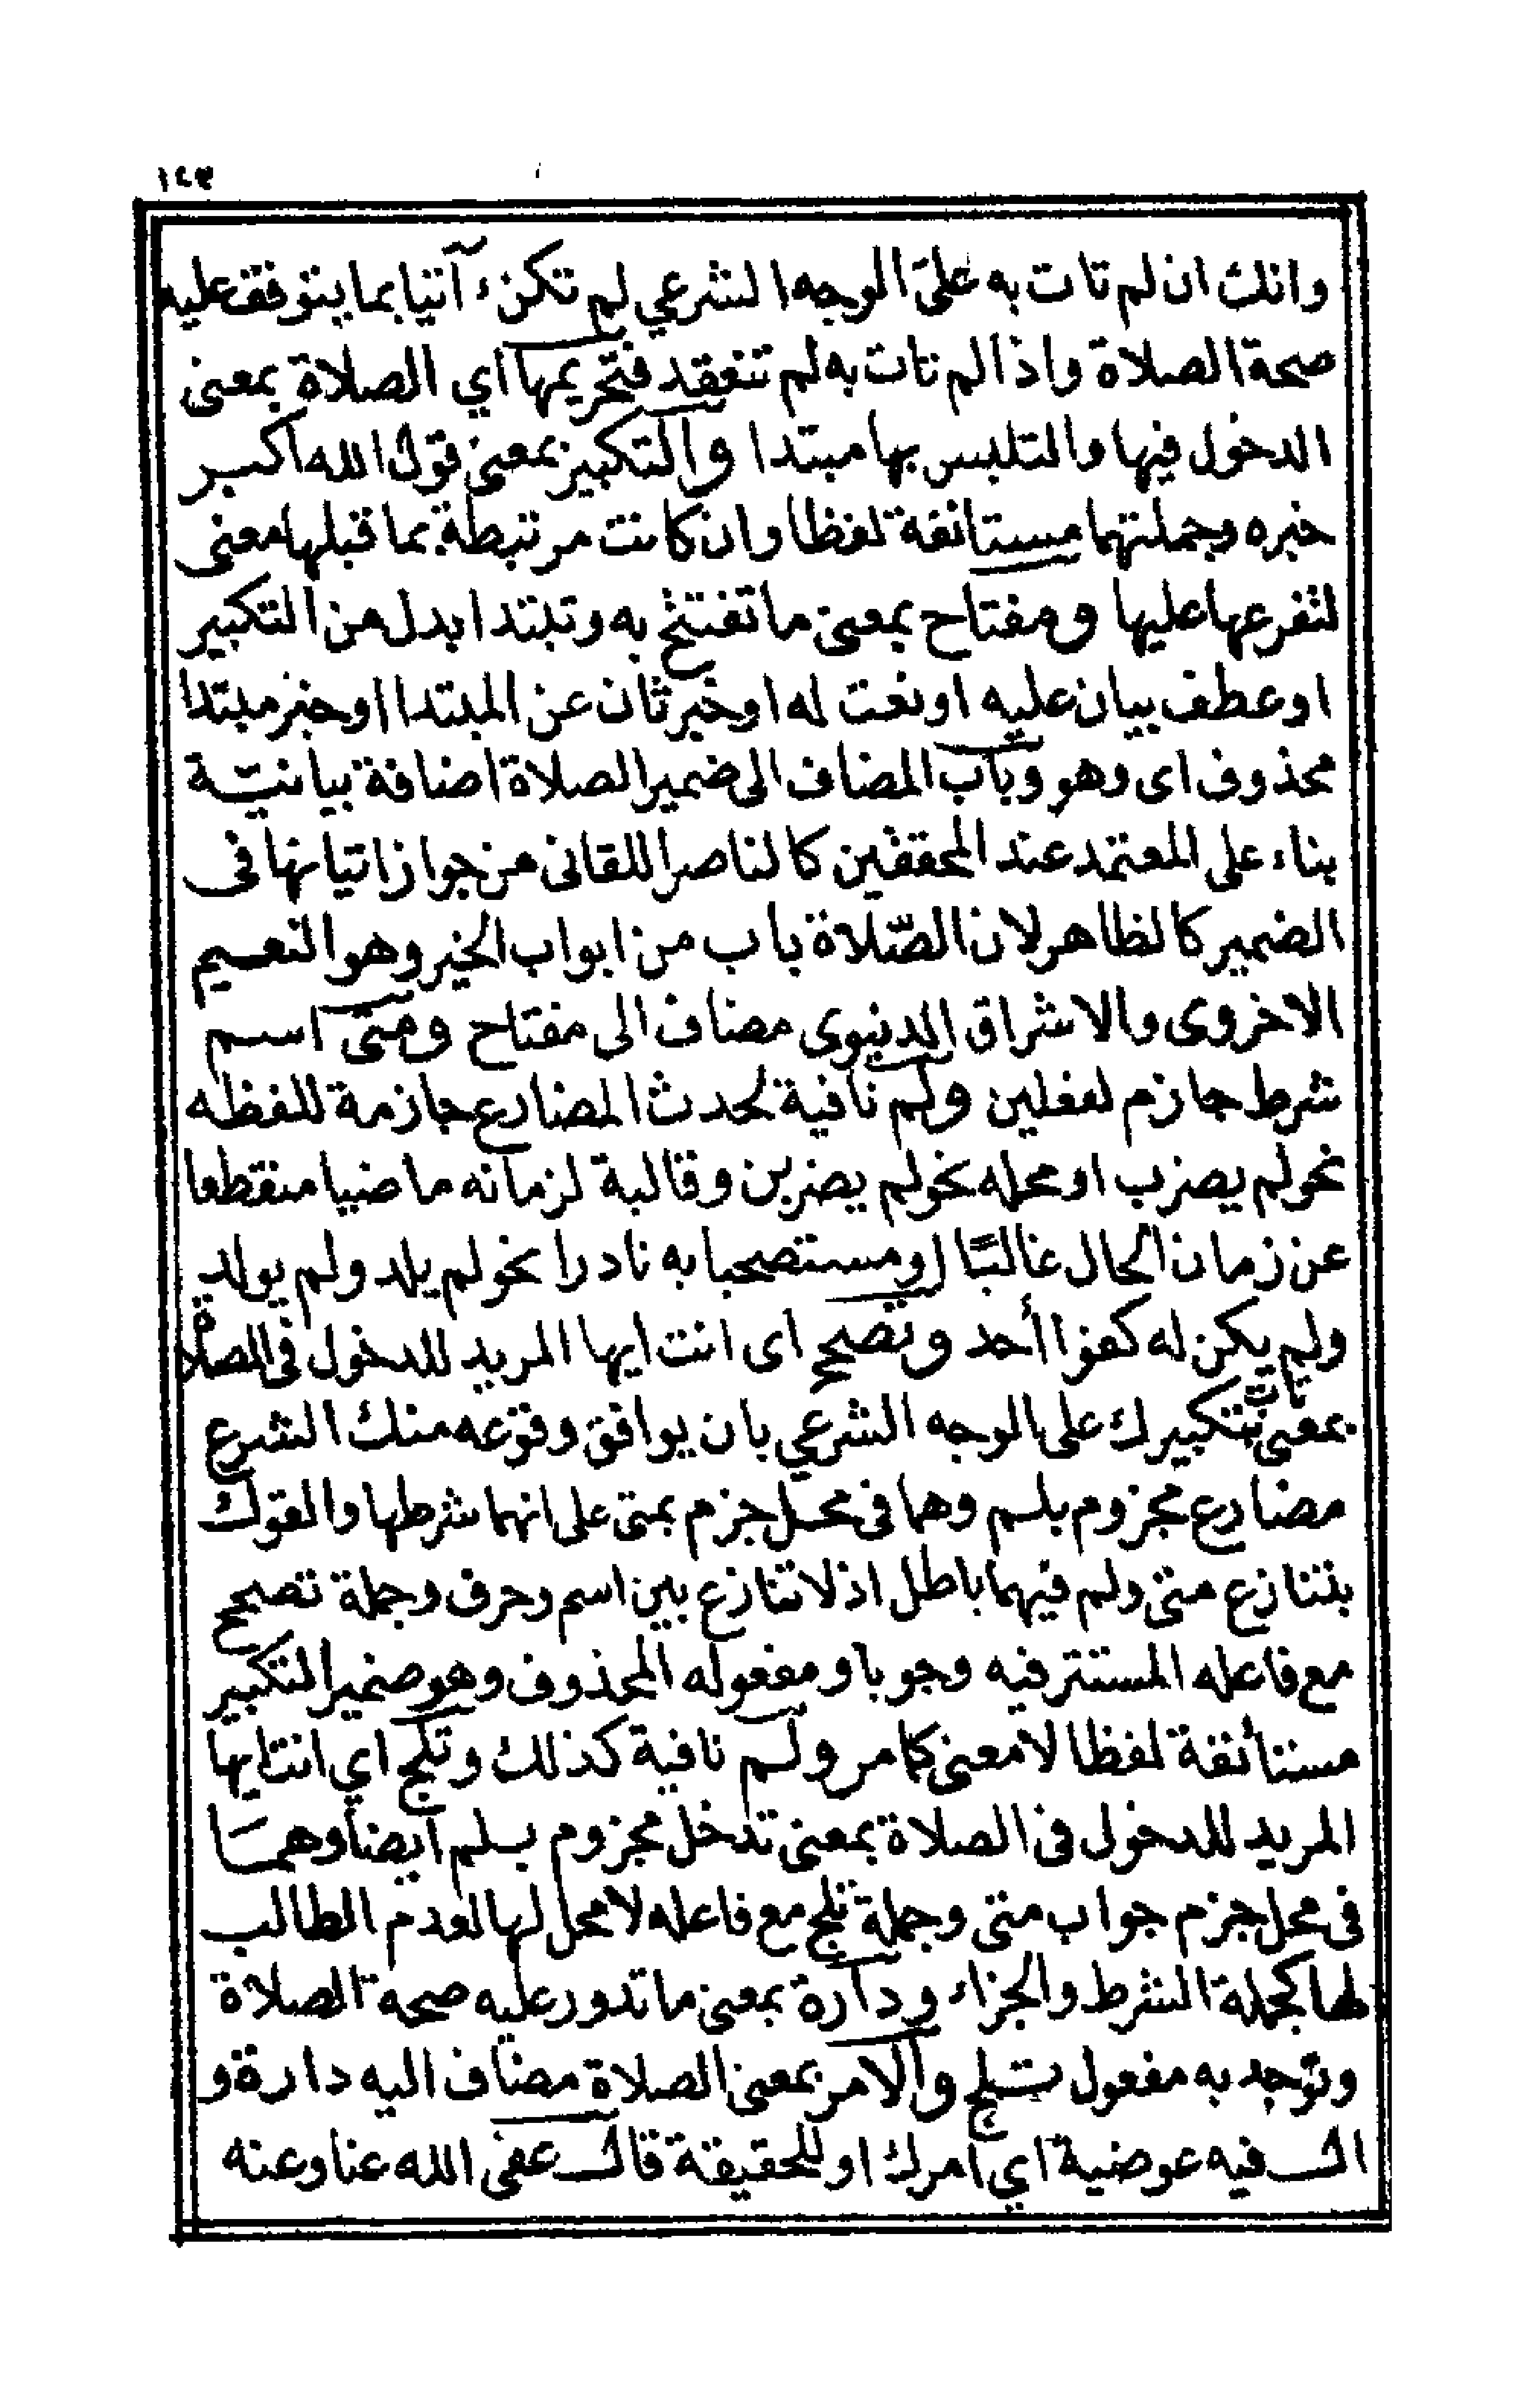 ١٤٣
وانك ان لم تات به على الوجه الشرعي لم تكن آتيا بما يتوقف عليه
صحة الصلاة واذا لم تات به لم تنعقد فتحريمها اي الصلاة بمعنى
الدخول فيها والتلبس بها مبتدا والتكبير بمعنى قول الله اكبر
خبره وجملتهما مستانفة لفظا وان كانت مرتبطة بما قبلها معنى
لتفرعها عليها ومفتاح بمعنى ما تفتتح به وتبتدا بدل من التكبير
او عطف بيان عليه او نعت له او خبر ثان عن المبتدا او خبر مبتدا
محذوف اى وهو وباب المضاف الى ضمير الصلاة اضافة بيانيّة
بناء على المعتمد عند المحققين كالناصر اللقانى من جواز اتيانها فى
الضمير كالظاهر لان الصّلاة باب من ابواب الخير وهو النعيم
الاخروى والاشراق الدنيوى مضاف الى مفتاح ومتى اسم
شرط جازم لفعلين ولم نافية لحدث المضارع جازمة للفظه
نحو لم يضرب او محله نحو لم يضربن وقالبة لزمانه ماضيا منقطعا
عن زمان الحال غالبًا او مستصحبا به نادرا نحو لم يلد ولم يولد
ولم يكن له كفوا أحد وتصحح اى انت ايها المريد للدخول فى الصلاة
بمعنى تات بتكبيرك على الوجه الشرعي بان يوافق وقوعه منك الشرع
مضارع مجزوم بلم وهما فى محل جزم بمتى على انهما شرطها والقول
بتنازع متى ولم فيهما باطل اذ لا تنازع بين اسم وحرف وجملة تصحح
مع فاعله المستتر فيه وجوبا ومفعوله المحذوف وهو ضمير التكبير
مستأنفة لفظا لا معنى كما مر ولم نافية كذلك وتلج اي انت ايها
المريد للدخول فى الصلاة بمعنى تدخل مجزوم بلم ايضا وهما
فى محل جزم جواب متى وجملة تلج مع فاعله لا محل لها لعدم الطالب
لها كجملة الشرط والجزاء ودارة بمعنى ما تدور عليه صحة الصلاة
وتوجد به مفعول تلج والامر بمعنى الصلاة مضاف اليه دارة و
ال فيه عوضية اي امرك او للحقيقة قال عفى الله عنا وعنه